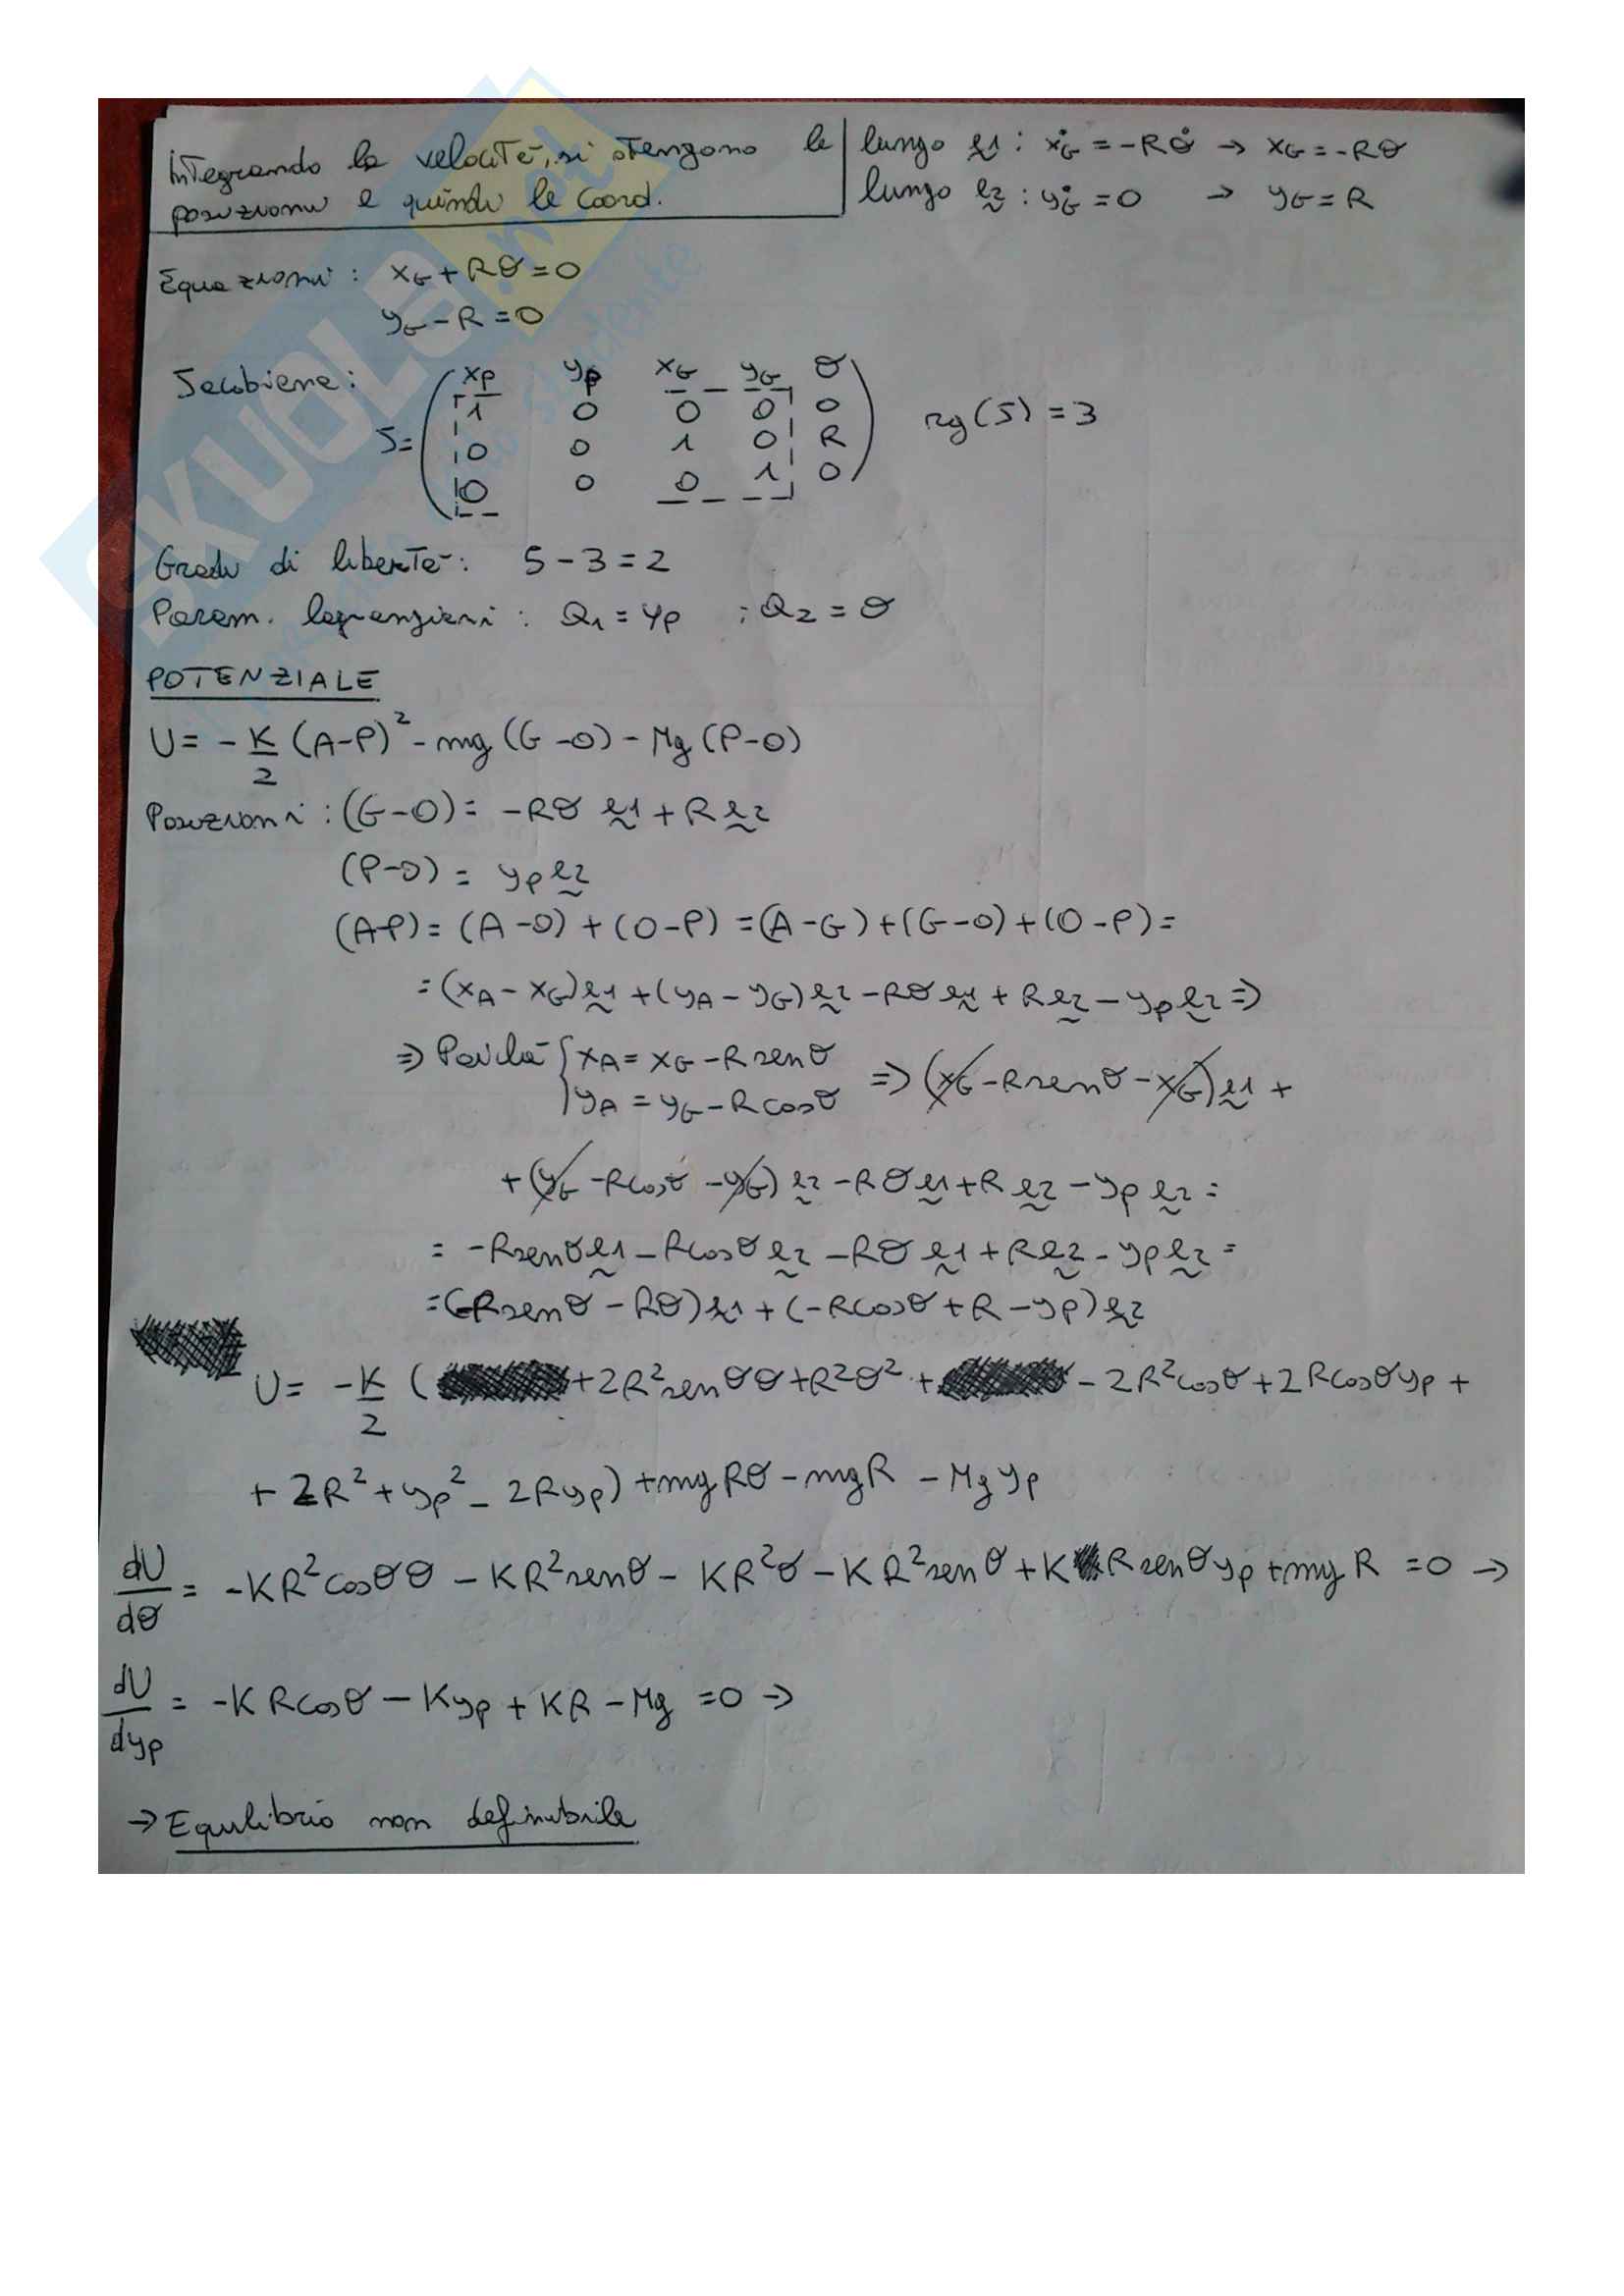 Integrando la velocità, si otengono le
posizioni e quindi le Coord.
lungo e1 : ẋG = -Rθ̇ → xG = -Rθ
lungo e2 : ẏG = 0 → yG = R
Equazioni : xG + Rθ = 0
yG - R = 0
Jacobiana :
xP yP xG yG θ
1 0 0 0 0
J = 0 0 1 0 R rg(J) = 3
0 0 0 1 0
Gradi di libertà : 5 - 3 = 2
Param. lagrangiani : Q1 = yP ; Q2 = θ
POTENZIALE
U = - K/2 (A-P)² - mg (G-O) - Mg (P-O)
Posizioni : (G-O) = -Rθ e1 + R e2
(P-O) = yP e2
(A-P) = (A-O) + (O-P) = (A-G) + (G-O) + (O-P) =
= (xA - xG) e1 + (yA - yG) e2 - Rθ e1 + R e2 - yP e2 ⇒
⇒ Poichè { xA = xG - R senθ
yA = yG - R cosθ ⇒ (xG - R senθ - xG) e1 +
+ (yG - R cosθ - yG) e2 - Rθ e1 + R e2 - yP e2 =
= -R senθ e1 - R cosθ e2 - Rθ e1 + R e2 - yP e2 =
= (-R senθ - Rθ) e1 + (-R cosθ + R - yP) e2
U = -K/2 ( + 2R² senθ θ + R²θ² + - 2R² cosθ + 2R cosθ yP +
+ 2R² + yP² - 2R yP) + mg Rθ - mg R - Mg yP
dU/dθ = -KR² cosθ θ - KR² senθ - KR² θ - KR² senθ + K R senθ yP + mg R = 0 →
dU/dyP = -K R cosθ - K yP + KR - Mg = 0 →
→ Equilibrio non definibile
SKUOLA.net